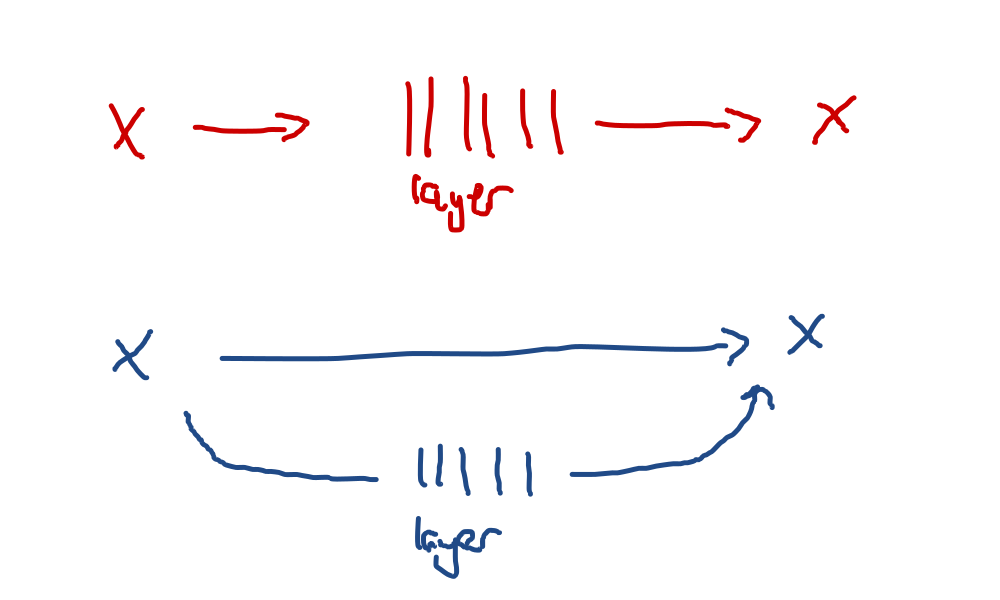 X X
layer
X X
layer